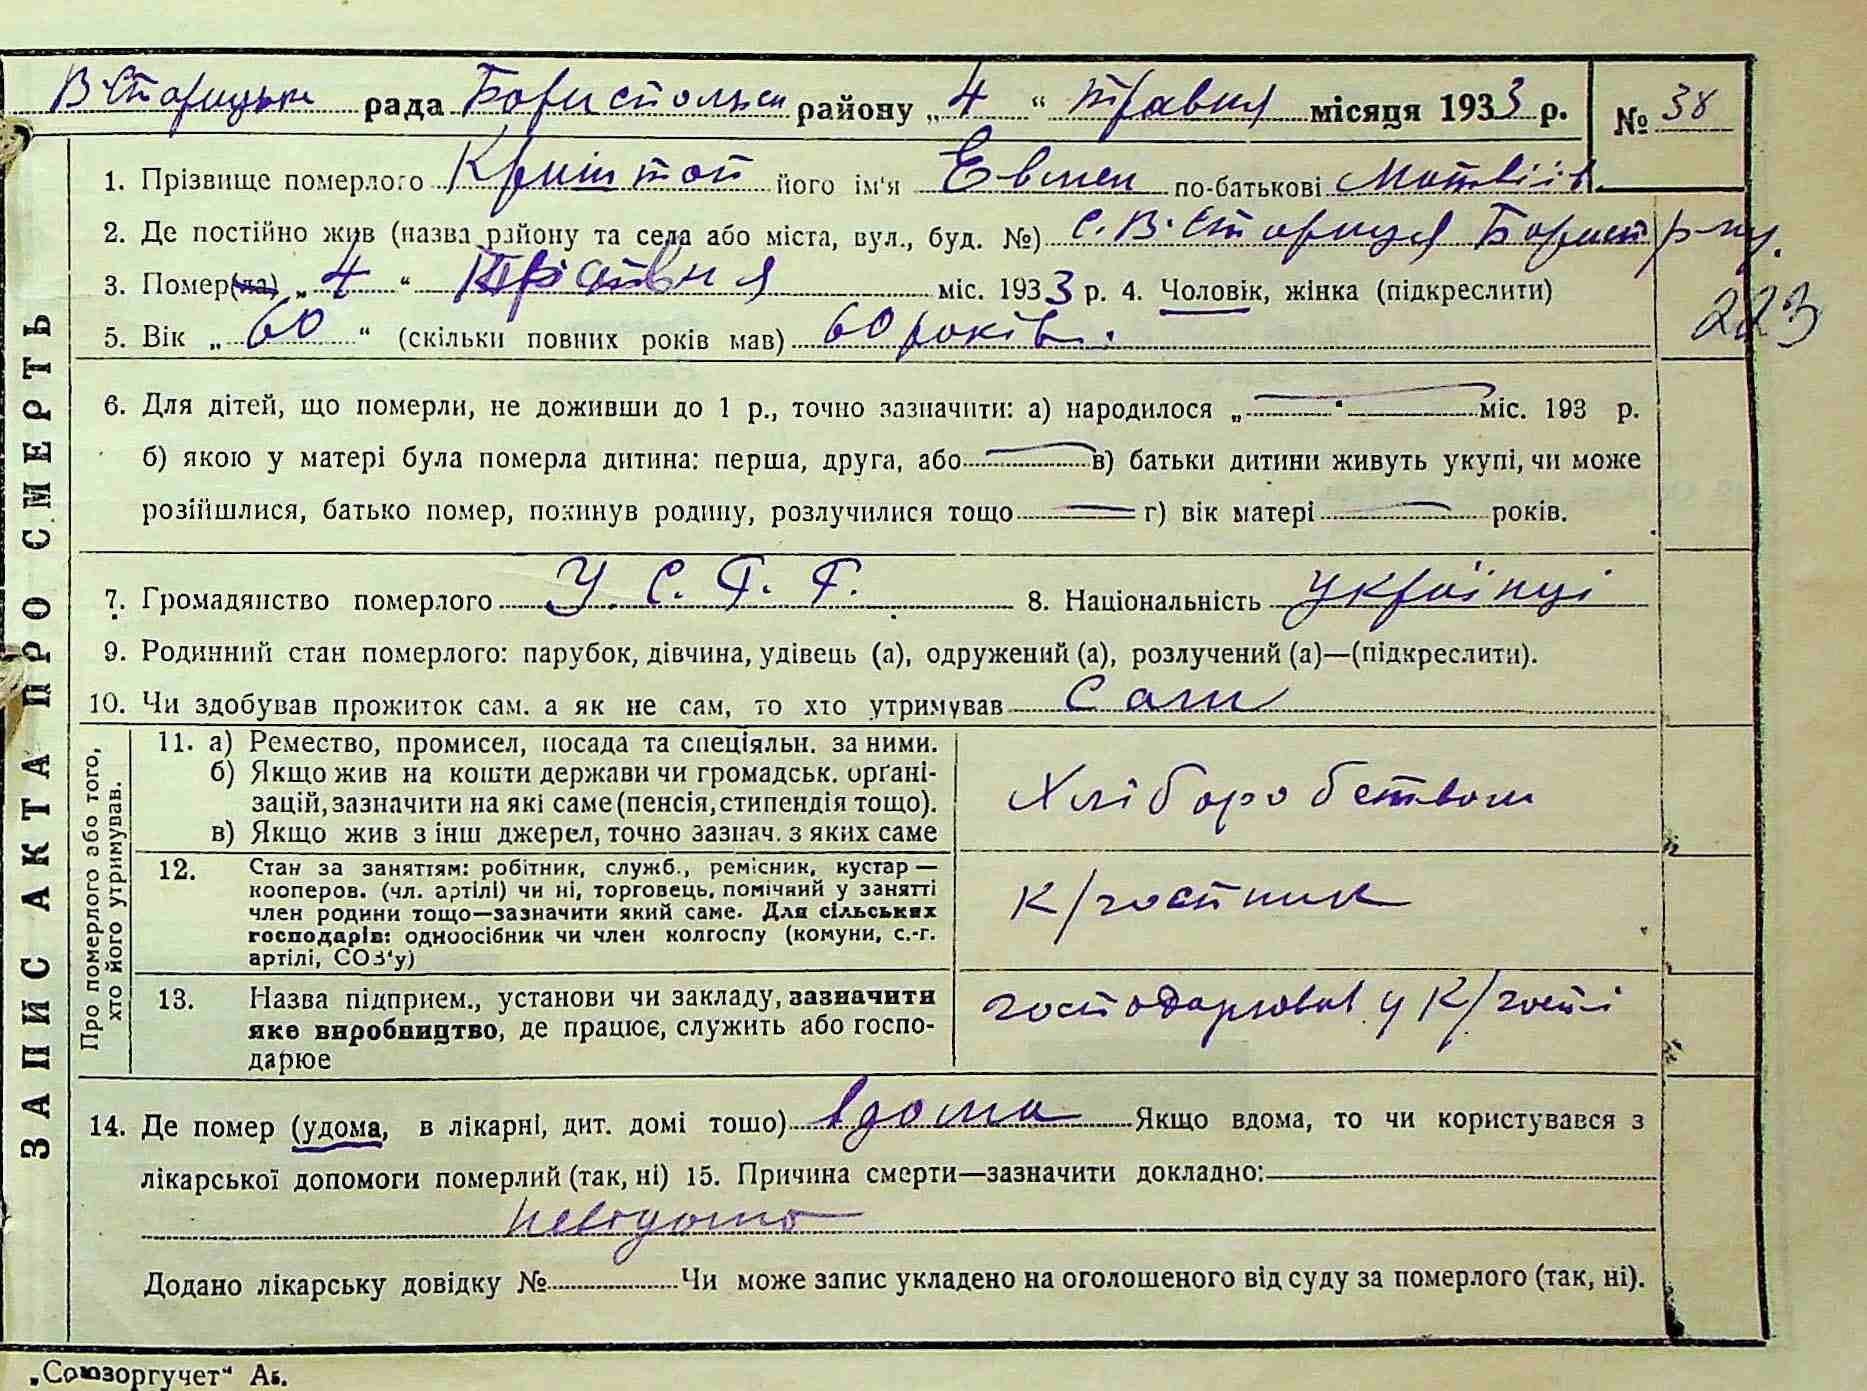 В-Старицька рада Бориспольськ району „4“ травня місяця 1933 р. № 38
ЗАПИС АКТА ПРО СМЕРТЬ
1. Прізвище померлого Криштоп його ім'я Евмен по-батькові Матвіїв
2. Де постійно жив (назва району та села або міста, вул., буд. №) с. В-Стариця Борисп р-ну.
3. Помер(ла) „4“ травня міс. 1933 р. 4. Чоловік, жінка (підкреслити)
223
5. Вік „60“ (скільки повних років мав) 60 років.
6. Для дітей, що померли, не доживши до 1 р., точно зазначити: а) народилося „ “ міс. 193 р.
б) якою у матері була померла дитина: перша, друга, або в) батьки дитини живуть укупі, чи може
розійшлися, батько помер, покинув родину, розлучилися тощо г) вік матері років.
7. Громадянство померлого У. С. Р. Р. 8. Національність українці
9. Родинний стан померлого: парубок, дівчина, удівець (а), одружений (а), розлучений (а)—(підкреслити).
10. Чи здобував прожиток сам. а як не сам, то хто утримував Сам
Про померлого або того,
хто його утримував.
11. а) Ремество, промисел, посада та спеціяльн. за ними.
б) Якщо жив на кошти держави чи громадськ. орґані-
зацій, зазначити на які саме (пенсія, стипендія тощо).
в) Якщо жив з інш джерел, точно зазнач. з яких саме
Хліборобством
12. Стан за заняттям: робітник, служб., ремісник, кустар —
кооперов. (чл. артілі) чи ні, торговець, помічний у занятті
член родини тощо—зазначити який саме. Для сільських
господарів: одноосібник чи член колгоспу (комуни, с.-г.
артілі, СОЗ'у)
к/госпник
13. Назва підприєм., установи чи закладу, зазначити
яке виробництво, де працює, служить або госпо-
дарює
господарював у к/госпі
14. Де помер (удома, в лікарні, дит. домі тошо) вдома Якщо вдома, то чи користувався з
лікарської допомоги померлий (так, ні) 15. Причина смерти—зазначити докладно:
невідомо
Додано лікарську довідку № Чи може запис укладено на оголошеного від суду за померлого (так, ні).
„Союзоргучет“